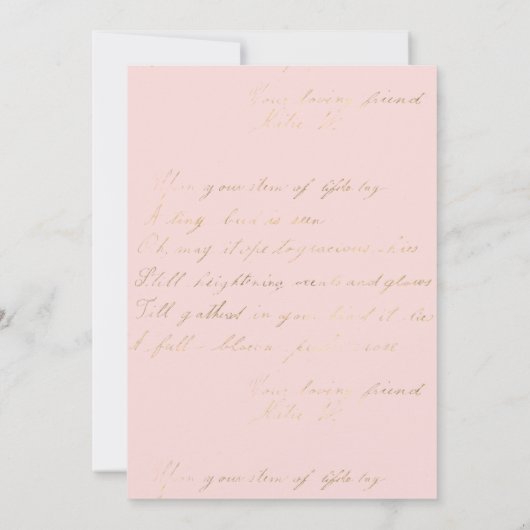 Your loving friend
Katie W.
Upon your stem of life to day
A tiny bud is seen
Oh, may it ope to gracious skies
Still brightning, and glows
Till gathered in your hand it lies
A full-blown perfect rose
Your loving friend
Katie W.
Upon your stem of life to day